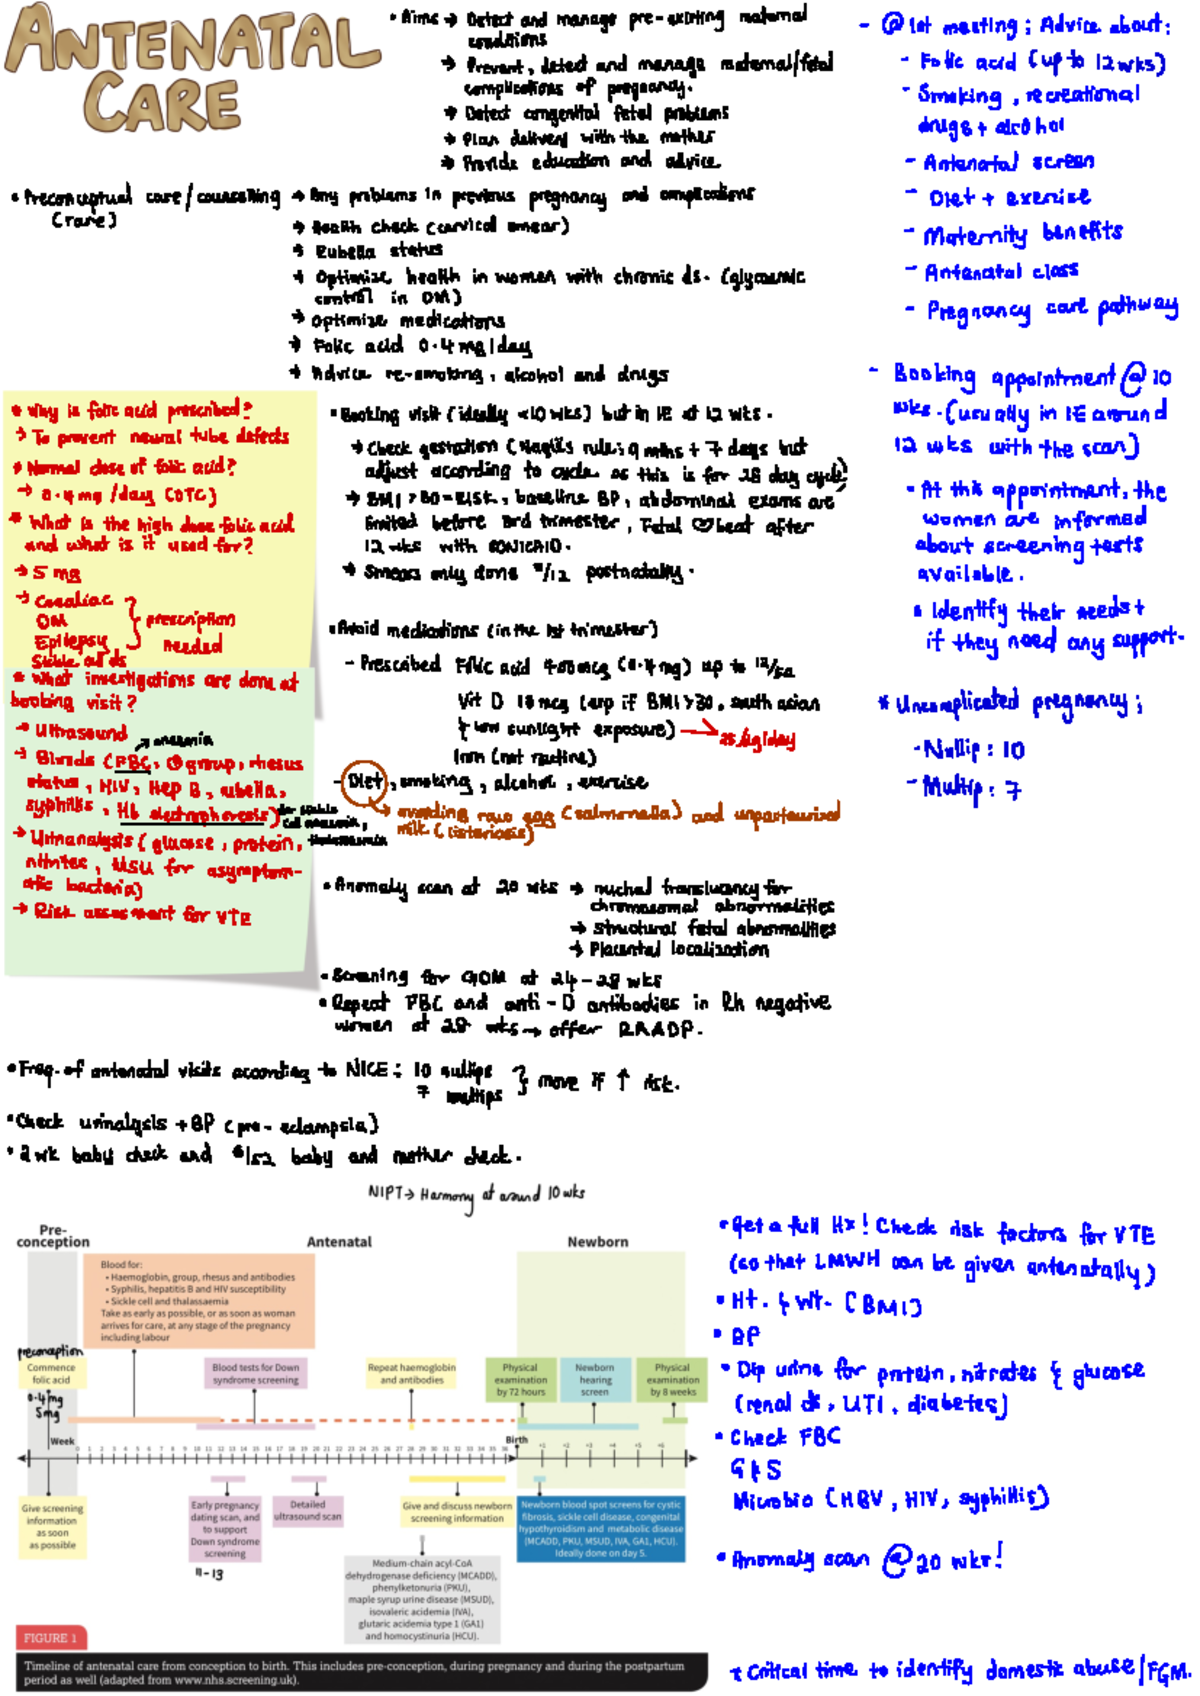 ANTENATAL
CARE
• Aims → Detect and manage pre-existing maternal
conditions
→ Prevent, detect and manage maternal/fetal
complications of pregnancy.
→ Detect congenital fetal problems
→ Plan delivery with the mother
→ Provide education and advice
• Preconceptual care/counselling
(rare)
→ Any problems in previous pregnancy and complications
→ Health check (cervical smear)
→ Rubella status
→ Optimize health in women with chronic ds. (glycaemic
control in DM)
→ Optimize medications
→ Folic acid 0.4mg/day
→ Advice re-smoking, alcohol and drugs
- @ 1st meeting; Advice about:
- Folic acid (up to 12wks)
- Smoking, recreational
drugs + alcohol
- Antenatal screen
- Diet + exercise
- Maternity benefits
- Antenatal class
- Pregnancy care pathway
- Booking appointment @ 10
wks. (usually in IE around
12 wks with the scan)
• At this appointment, the
women are informed
about screening tests
available.
• Identify their needs +
if they need any support.
* Uncomplicated pregnancy;
- Nullip: 10
- Multip: 7
* Why is folic acid prescribed?
→ To prevent neural tube defects
* Normal dose of folic acid?
→ 0.4 mg/day (OTC)
* What is the high dose folic acid
and what is it used for?
→ 5 mg
→ Coealiac
DM
Epilepsy
Sickle cell ds
} prescription
needed
* What investigations are done at
booking visit?
→ Ultrasound
→ anaemia
→ Bloods (FBC, group, rhesus
status, HIV, Hep B, rubella,
syphilis, Hb electrophoresis)
for sickle
cell anaemia,
thalassaemia
→ Urinanalysis (glucose, protein,
nitrites, MSU for asymptom-
atic bacteria)
→ Risk assessment for VTE
• Booking visit (ideally <10 wks) but in IE at 12 wks.
→ Check gestation (Nagel's rule: 9 mths + 7 days but
adjust according to cycle as this is for 28 day cycle)
→ BMI >30 = RISK, baseline BP, abdominal exams are
limited before 3rd trimester, Fetal ♡beat after
12 wks with SONICAID.
→ Smears only done /12 postnatally.
• Avoid medications (in the 1st trimester)
- Prescribed Folic acid 400mcg (0.4mg) up to 12/52
Vit D 10 mcg (esp if BMI >30, south asian
& low sunlight exposure) → 25 µg/day
Iron (not routine)
- Diet, smoking, alcohol, exercise
→ avoiding raw egg (salmonella) and unpasteurized
milk (listeriosis)
• Anomaly scan at 20 wks → nuchal translucency for
chromosomal abnormalities
→ Structural fetal abnormalities
→ Placental localization
• Screening for GDM at 24-28 wks
• Repeat FBC and anti-D antibodies in Rh negative
women at 28 wks → offer RAADP.
• Freq. of antenatal visits according to NICE: 10 nullips
7 multips
} move if ↑ risk.
• Check urinalysis + BP (pre-eclampsia)
• 2 wk baby check and 6/52 baby and mother check.
NIPT → Harmony at around 10 wks
Pre-
conception
Antenatal
Newborn
Blood for:
• Haemoglobin, group, rhesus and antibodies
• Syphilis, hepatitis B and HIV susceptibility
• Sickle cell and thalassaemia
Take as early as possible, or as soon as woman
arrives for care, at any stage of the pregnancy
including labour
preconception
Commence
folic acid
0.4mg
5mg
Blood tests for Down
syndrome screening
Repeat haemoglobin
and antibodies
Physical
examination
by 72 hours
Newborn
hearing
screen
Physical
examination
by 8 weeks
Week
Birth
0 1 2 3 4 5 6 7 8 9 10 11 12 13 14 15 16 17 18 19 20 21 22 23 24 25 26 27 28 29 30 31 32 33 34 35 36
+1 +2 +3 +4 +5 +6
Give screening
information
as soon
as possible
Early pregnancy
dating scan, and
to support
Down syndrome
screening
11-13
Detailed
ultrasound scan
Give and discuss newborn
screening information
Newborn blood spot screens for cystic
fibrosis, sickle cell disease, congenital
hypothyroidism and metabolic disease
(MCADD, PKU, MSUD, IVA, GA1, HCU).
Ideally done on day 5.
Medium-chain acyl-CoA
dehydrogenase deficiency (MCADD),
phenylketonuria (PKU),
maple syrup urine disease (MSUD),
isovaleric acidemia (IVA),
glutaric acidemia type 1 (GA1)
and homocystinuria (HCU).
FIGURE 1
Timeline of antenatal care from conception to birth. This includes pre-conception, during pregnancy and during the postpartum
period as well (adapted from www.nhs.screening.uk).
• Get a full Hx! Check risk factors for VTE
(so that LMWH can be given antenatally)
• Ht. & Wt. (BMI)
• BP
• Dip urine for protein, nitrates & glucose
(renal ds, UTI, diabetes)
• Check FBC
G&S
Microbio (HBV, HIV, syphillis)
• Anomaly scan @ 20 wks!
* Critical time to identify domestic abuse/FGM.